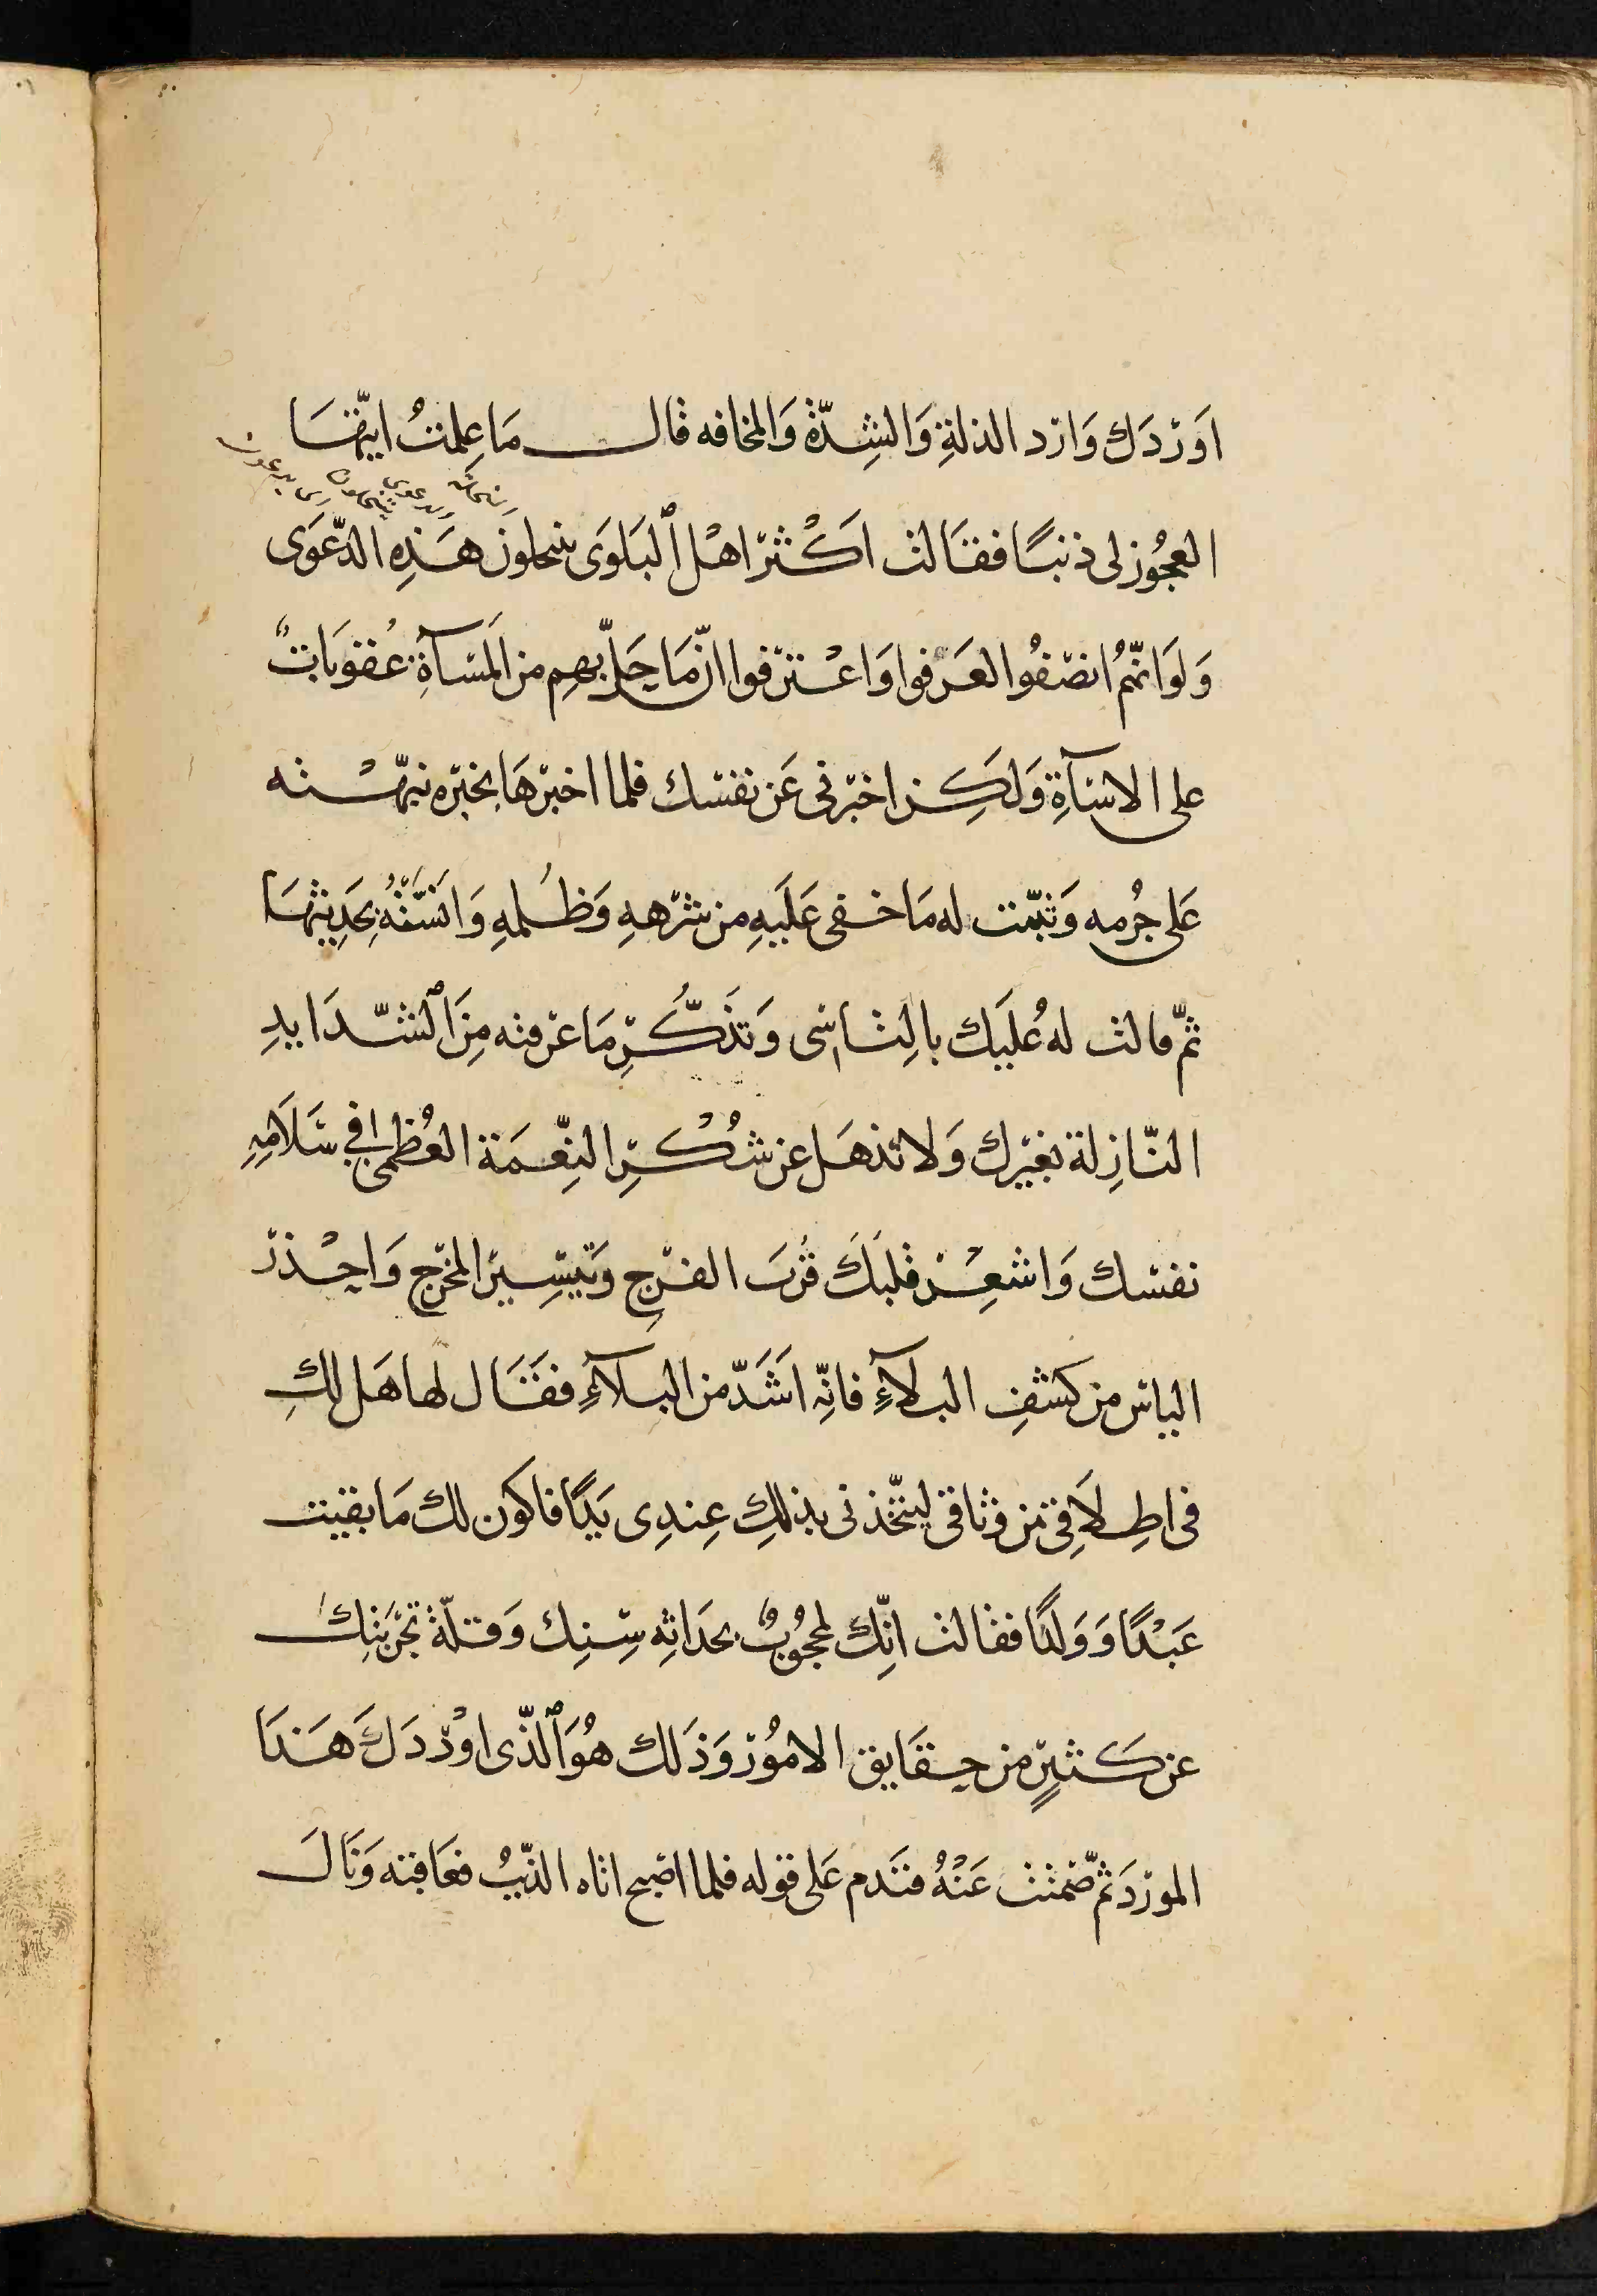 اَوْرَدَكَ وَارد الذلةِ وَالشِدّةْ وَالمخافه قال مَا عِلمتُ ايتّهَا
العجُوز لى ذنبًا فقَالت اكْثر اهْل البَلوَى ينحلون هَذِه الدّعْوَى
وَلوَانّهُم انصَفُوا لعَرفوا وَاعْترفوا انّ مَا حَلّ بهِم من المَسَآةِ عُقوبَاتٌ
على الاسَآةِ وَلكِن اخبْرنى عَن نفسك فلما اخبرهَا بخبره نبّهْته
عَلى جُرمه وَبيّنت له مَا خفى عَليهِ من شرّههِ وَظُلمهِ وَانسَتْهُ بحَدِيثهَا
ثمّ قالت له عُليَك بالِتاسّى وَتذكُّرِ مَا عَرفته مِنَ الشّدَايدِ
النّازِلة بغيْرك وَلا تذهَل عن شُكْرِ النِّعمَة العُظمى فى سَلَامِهِ
نفسك وَاشعِرْ قلبَكَ قُربَ الفرَج وَتيسِيرَ المخرَج وَاحْذرْ
الياس من كشفِ البلآءِ فانّه اشَدّ من البلآءِ فقَال لها هَل لكِ
فى اطِلاقِى من وثاقى ليتّخذنى بذلكِ عِندِى يَدًا فاكون لك مَا بقيت
عَبْدًا وَوَلدًا فقالت انّك لمحجُوبٌ بحَداثِه سِنِك وَقلّةْ تجْربَتِكَ
عن كثيرٍ من حقَايق الامُوْر وَذلك هُوَ الذّى اوْرَدَكَ هَذَا
الموْردَ ثمّ صَمتت عَنْهُ فندم عَلى قوله فلما اصْبح اتاه الذّيبُ فعَاقبَه وَنَالَ